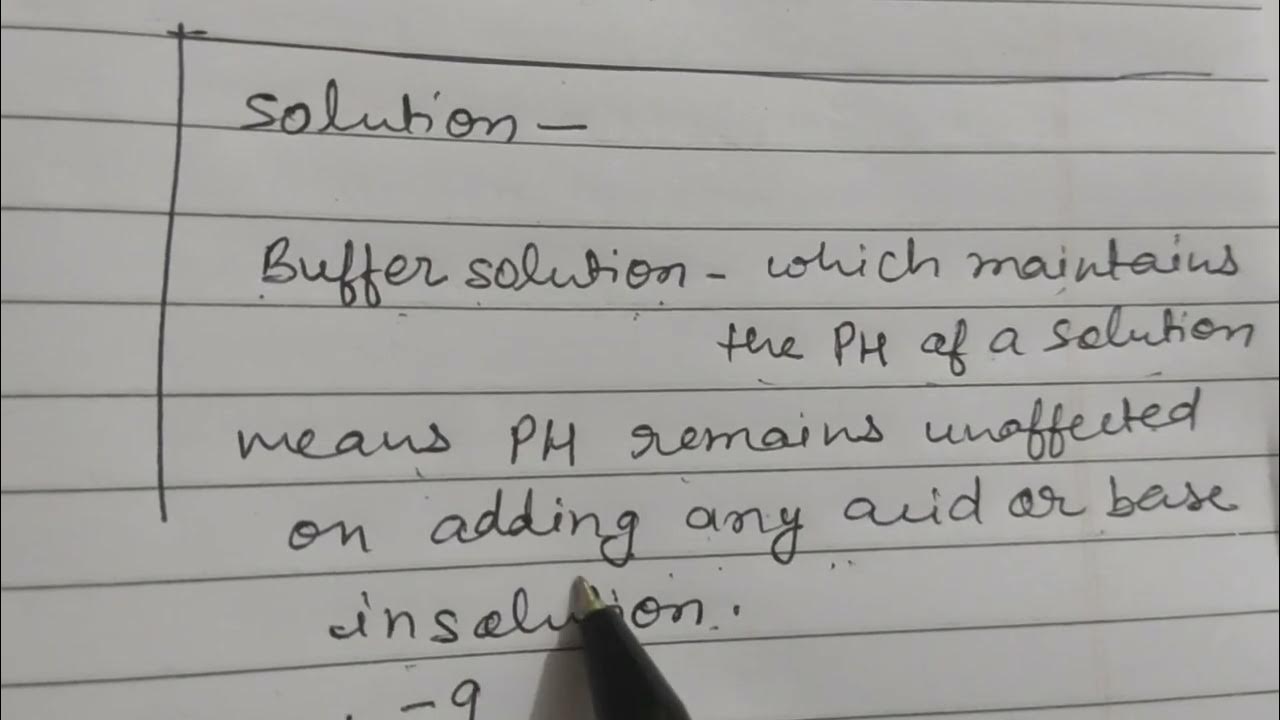 Solution —
Buffer solution - which maintains
the PH of a solution
means PH remains unaffected
on adding any acid or base
in solution.
-9